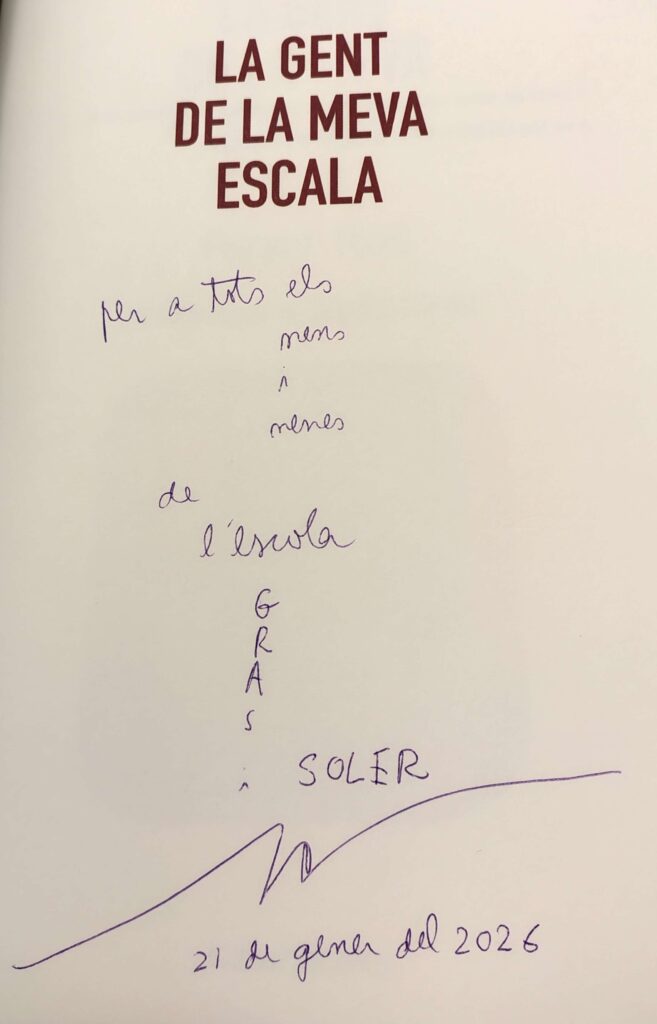 LA GENT
DE LA MEVA
ESCALA
per a tots els
nens
i
nenes
de
l'escola
G
R
A
S
i SOLER
21 de gener del 2026